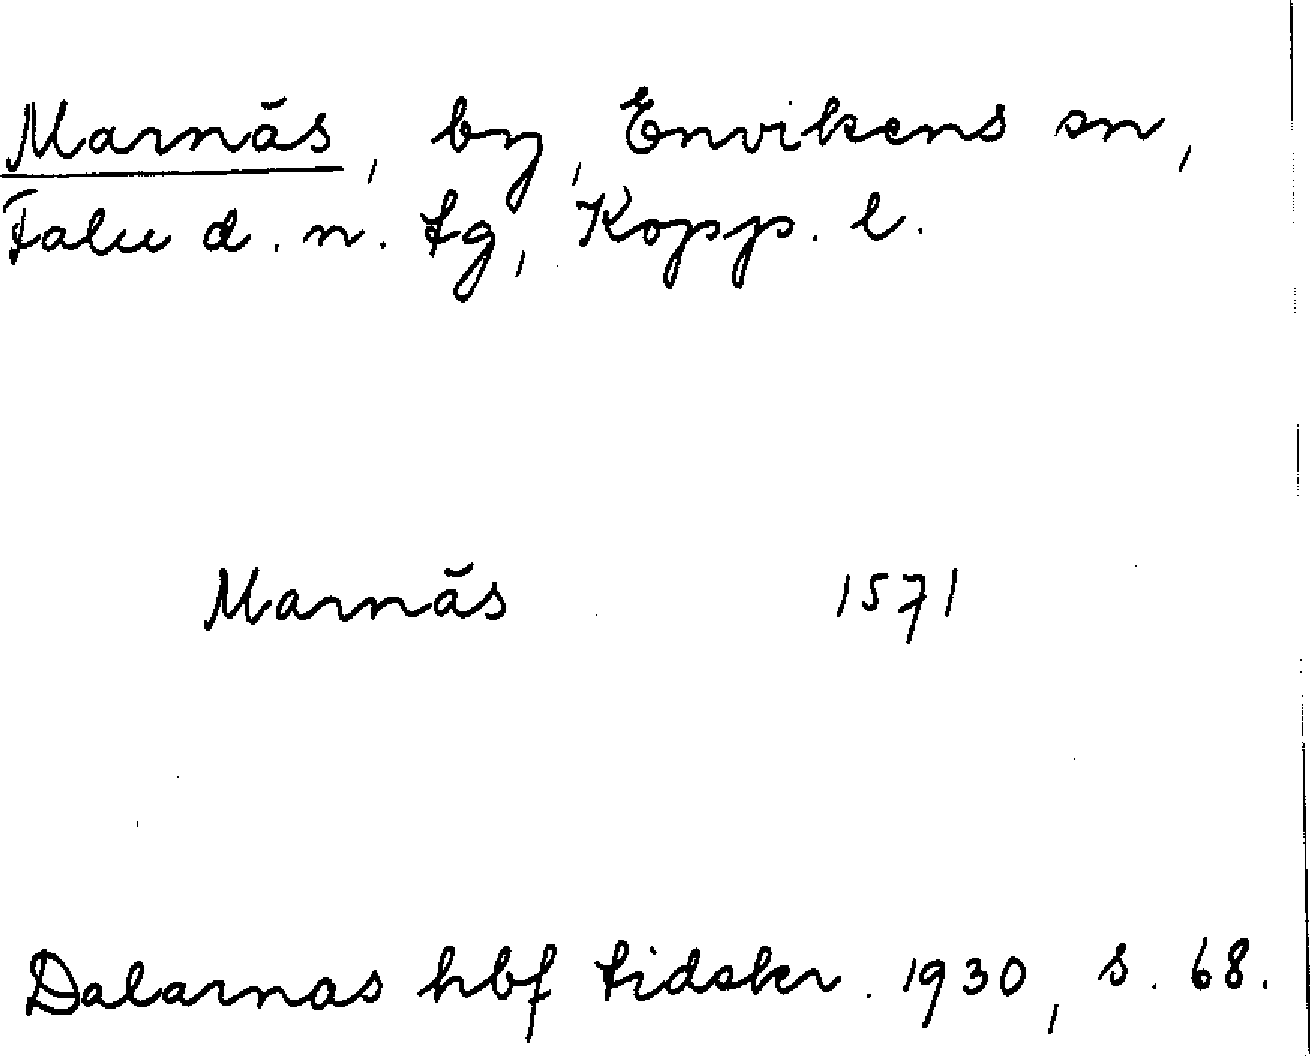 Marnäs, by, Envikens sn,
Falu d. n. tg, Kopp. l.
Marnäs 1571
Dalarnas hbf tidskr. 1930, s. 68.